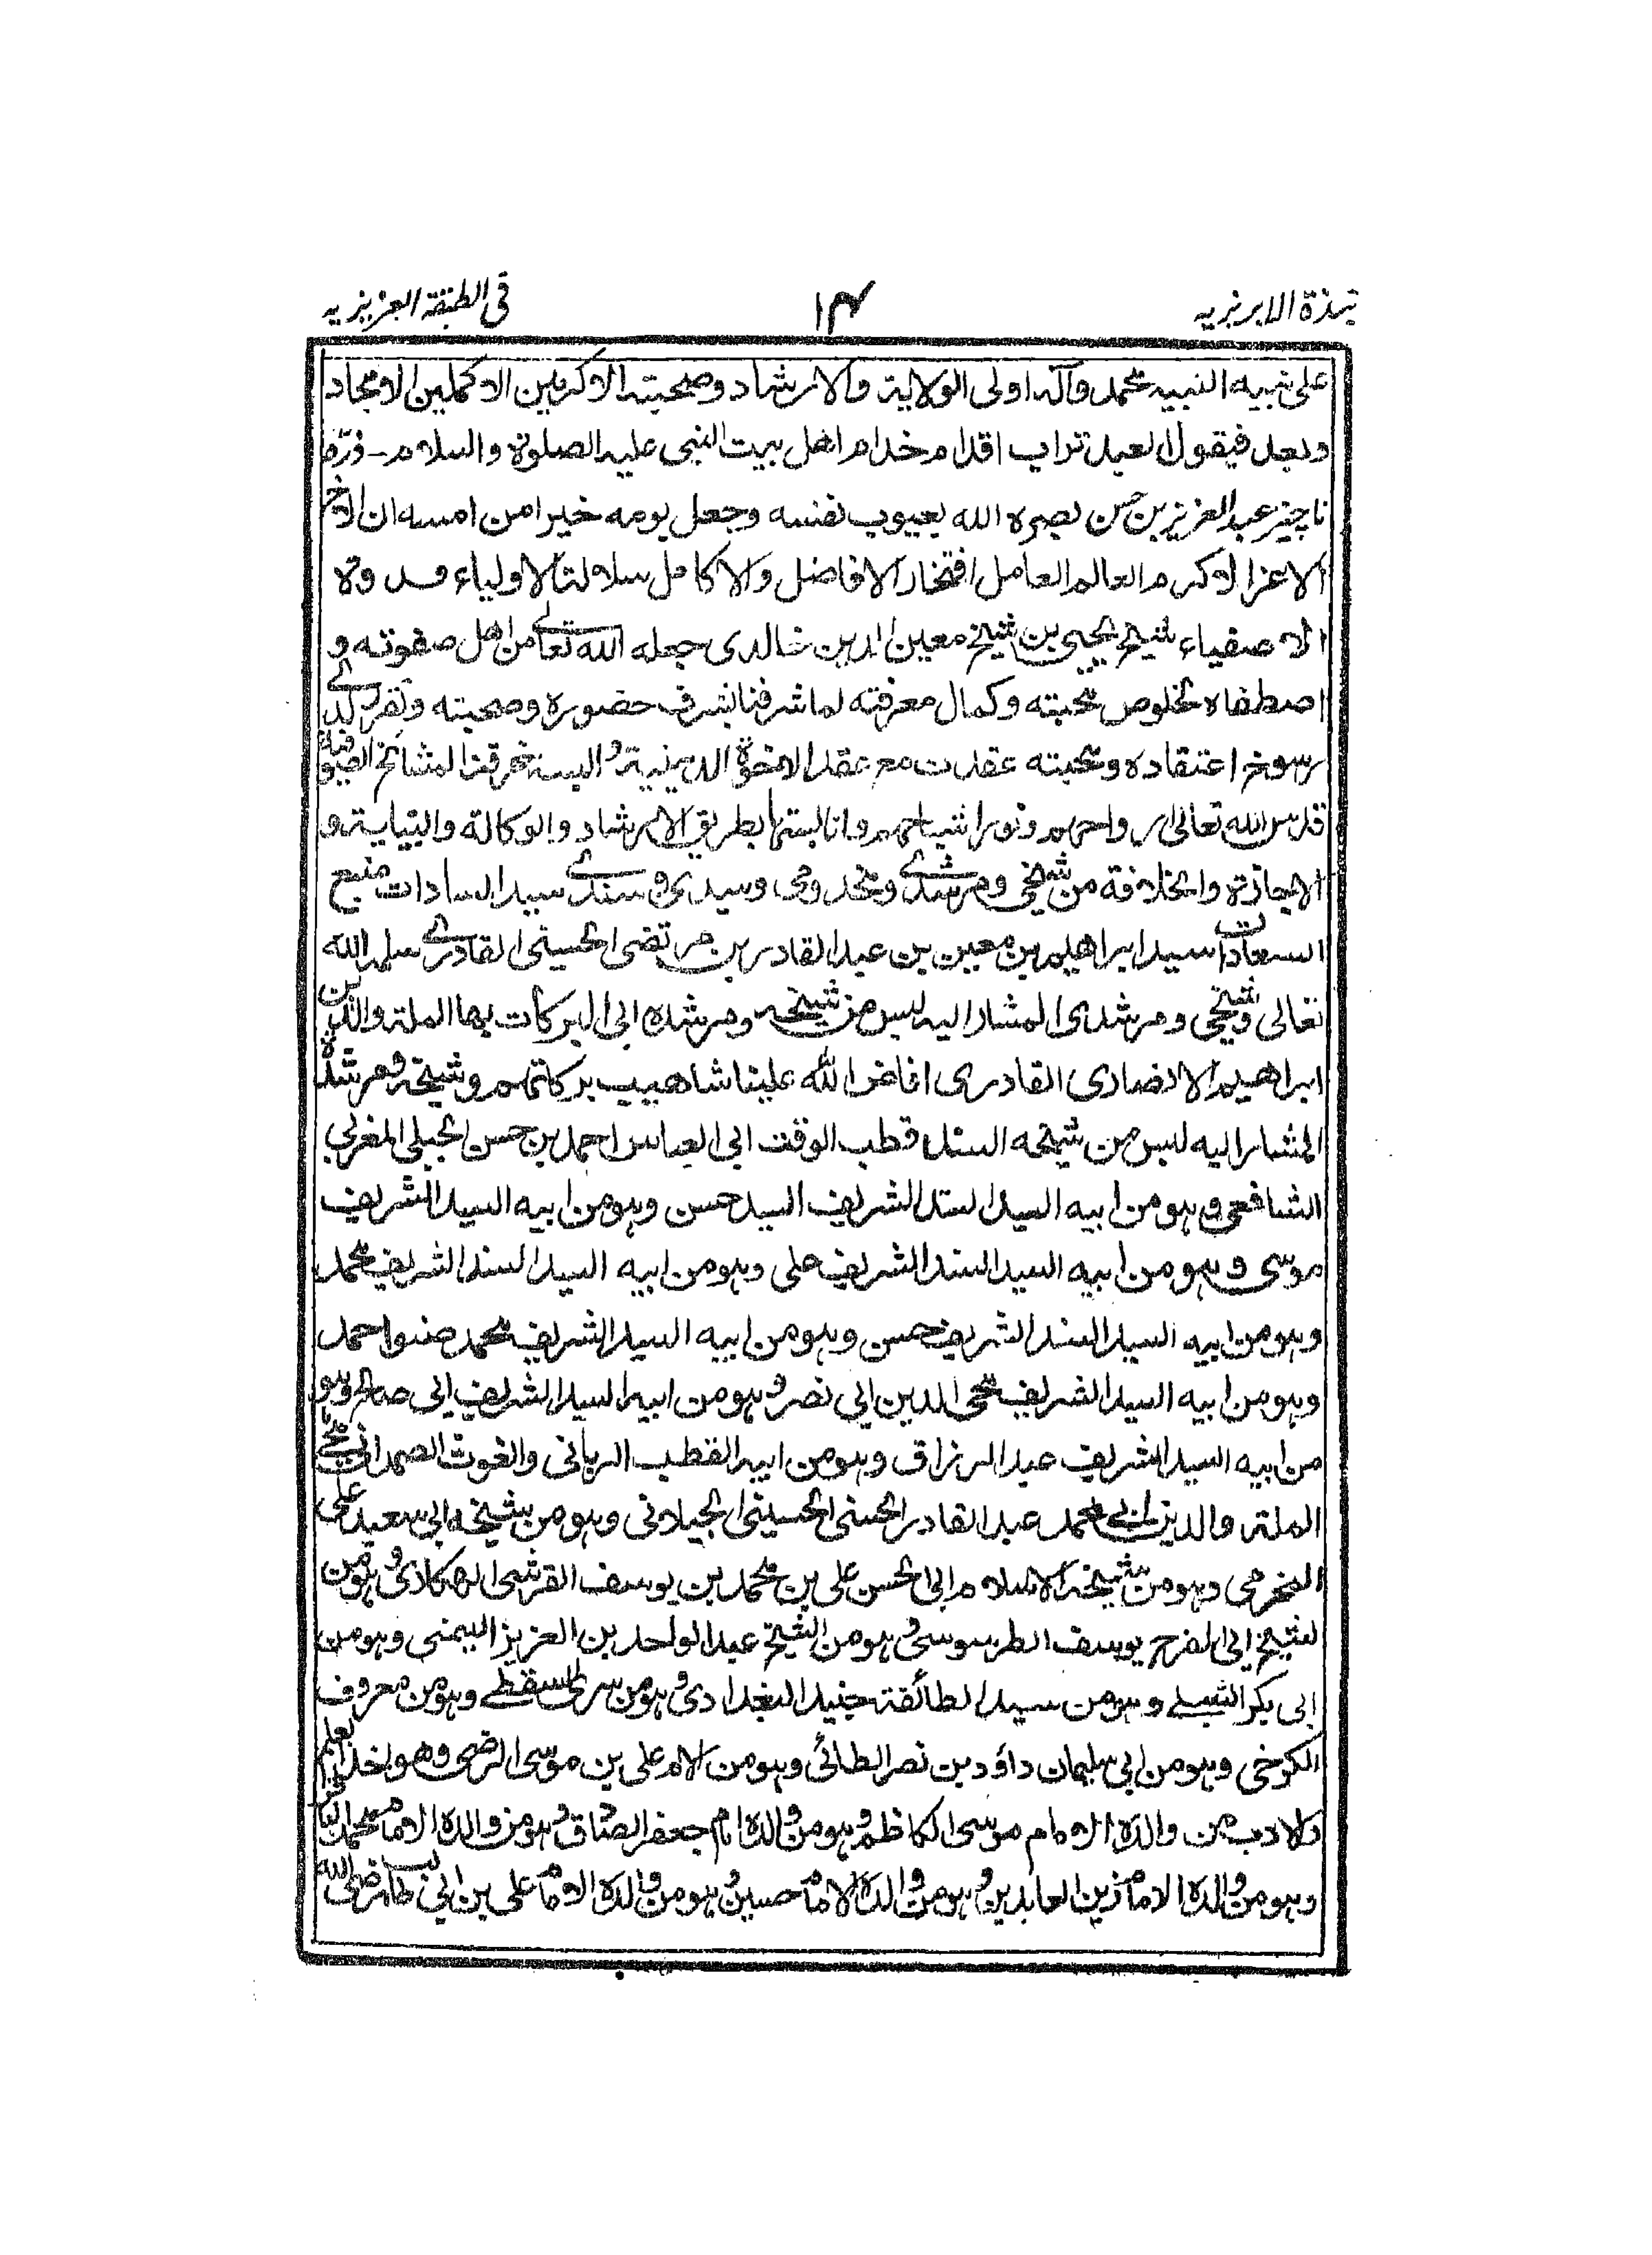 نبذة الابريزيه
۱۴
فى الطبقة العزيزيه
على نبيه النبيه محمد وآله اولى الولاية والارشاد وصحبته الاكرمين الاكملين الامجاد
وبعد فيقول العبد تراب اقدام خدام اهل بيت النبى عليه الصلوة والسلام - ذرّه
ناچيز عبد العزيز بن حسن بصره الله بعيوب نفسه وجعل يومه خيرا من امسه ان الاخ
الاعز الاكرم العالم العامل افتخار الافاضل والاكامل سلالة الاولياء قدوة
الاصفياء شيخ يحيى بن شيخ معين الدين خالدى جعله الله تعالے من اهل صفوته و
اصطفاه بخلوص محبته وكمال معرفته لما شرفنا بشرف حضوره وصحبته وتقرر لدے
رسوخ اعتقاده ومحبته عقدت معه عقد الاخوة الدينية و البسته خرقة المشائخ الصوفية
قدس الله تعالى ارواحهم ونور اشباحهم وانا لبستها بطريق الارشاد والوكالة والنيابة و
الاجازة والخلافة من شيخى ومرشدے ومخدومى وسيدى وسندے سيد السادات منبع
السعادات سيد ابراهيم بن معين بن عبد القادر بن مرتضى الحسينى القادرے سلمه الله
تعالى وشيخى ومرشدى المشار اليه لبس من شيخه ومرشده ابى البركات بهاء الملة والدين
ابراهيم الانصارى القادرى افاض الله علينا شابيب بركاتهم وشيخه ومرشده
المشار اليه لبس من شيخه السند قطب الوقت ابى العباس احمد بن حسن الجيلى المغربى
الشافعى وہو من ابيه السيد السند الشريف السيد حسن وہو من ابيه السيد الشريف
موسى وہو من ابيه السيد السند الشريف على وہو من ابيه السيد السند الشريف محمد
وہو من ابيه السيد السند الشريف حسن وہو من ابيه السيد الشريف محمد صنو احمد
وہو من ابيه السيد الشريف محى الدين ابى نصر وہو من ابيه السيد الشريف ابى صالح وہو
من ابيه السيد الشريف عبد الرزاق وہو من ابيه القطب الربانى والغوث الصمدانى محى
الملة والدين ابى محمد عبد القادر الحسنى الحسينى الجيلانى وہو من شيخه ابى سعيد على
المخرمى وہو من شيخ الاسلام ابى الحسن على بن محمد بن يوسف القرشى الهكارى وہو من
لشيخ ابى الفرح يوسف الطرسوسى وہو من الشيخ عبد الواحد بن العزيز اليمنى وہو من
ابى بكر الشبلے وہو من سيد الطائفة جنيد البغدادى وہو من سرى السقطے وہو من معروف
الكرخى وہو من ابى سليمان داؤد بن نصر الطائى وہو من الامام على بن موسى الرضى وهو اخذ العلم
والادب من والده الامام موسى الكاظم وہو من والده امام جعفر الصادق وہو من والده الامام محمد الباقر
وہو من والده الامام زين العابدين وہو من والده الامام حسين وہو من والده الامام على بن ابى طالب رضى الله